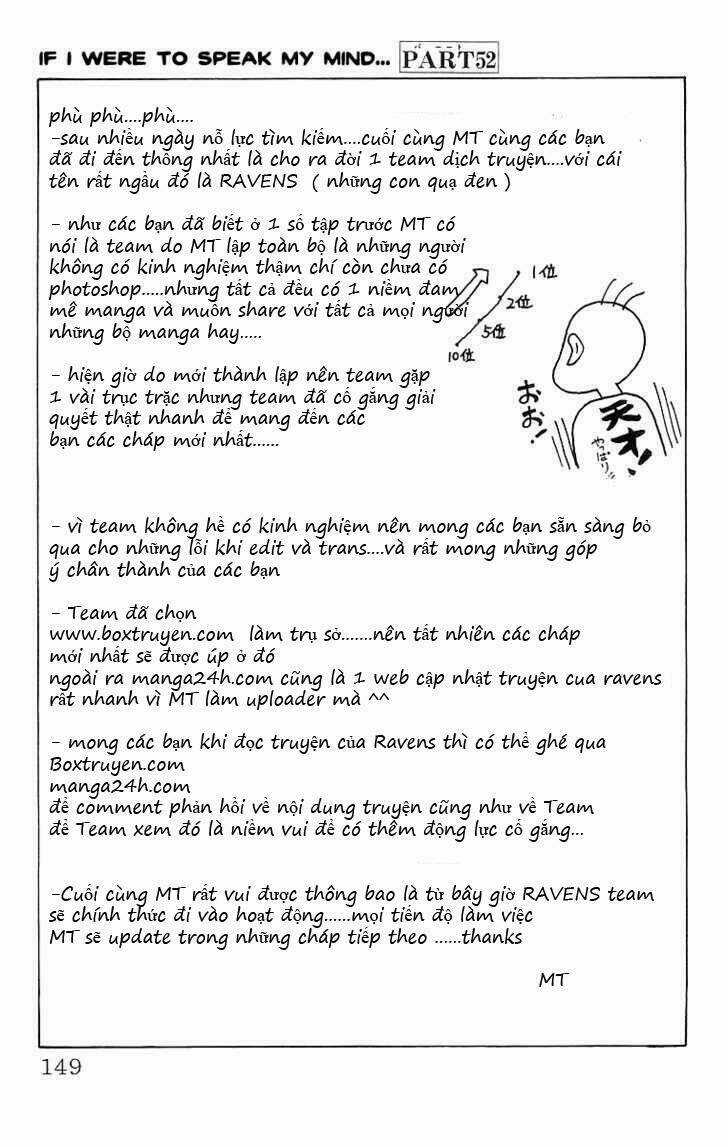 IF I WERE TO SPEAK MY MIND... PART52
phù phù....phù....
-sau nhiều ngày nỗ lực tìm kiếm....cuối cùng MT cùng các bạn
đã đi đến thống nhất là cho ra đời 1 team dịch truyện....với cái
tên rất ngầu đó là RAVENS ( những con quạ đen )
- như các bạn đã biết ở 1 số tập trước MT có
nói là team do MT lập toàn bộ là những người
không có kinh nghiệm thậm chí còn chưa có
photoshop.....nhưng tất cả đều có 1 niềm đam
mê manga và muôn share với tất cả mọi người
những bộ manga hay.....
1位
2位
5位
10位
おお!
天才!
やっぱり
- hiện giờ do mới thành lập nên team gặp
1 vài trục trặc nhưng team đã cố gắng giải
quyết thật nhanh để mang đến các
bạn các cháp mới nhất......
- vì team không hề có kinh nghiệm nên mong các bạn sẵn sàng bỏ
qua cho những lỗi khi edit và trans....và rất mong những góp
ý chân thành của các bạn
- Team đã chọn
www.boxtruyen.com làm trụ sở.......nên tất nhiên các cháp
mới nhất sẽ được úp ở đó
ngoài ra manga24h.com cũng là 1 web cập nhật truyện cua ravens
rất nhanh vì MT làm uploader mà ^^
- mong các bạn khi đọc truyện của Ravens thì có thể ghé qua
Boxtruyen.com
manga24h.com
để comment phản hồi về nội dung truyện cũng như về Team
để Team xem đó là niềm vui để có thêm động lực cố gắng...
-Cuối cùng MT rất vui được thông bao là từ bây giờ RAVENS team
sẽ chính thức đi vào hoạt động......mọi tiến độ làm việc
MT sẽ update trong những cháp tiếp theo ......thanks
MT
149